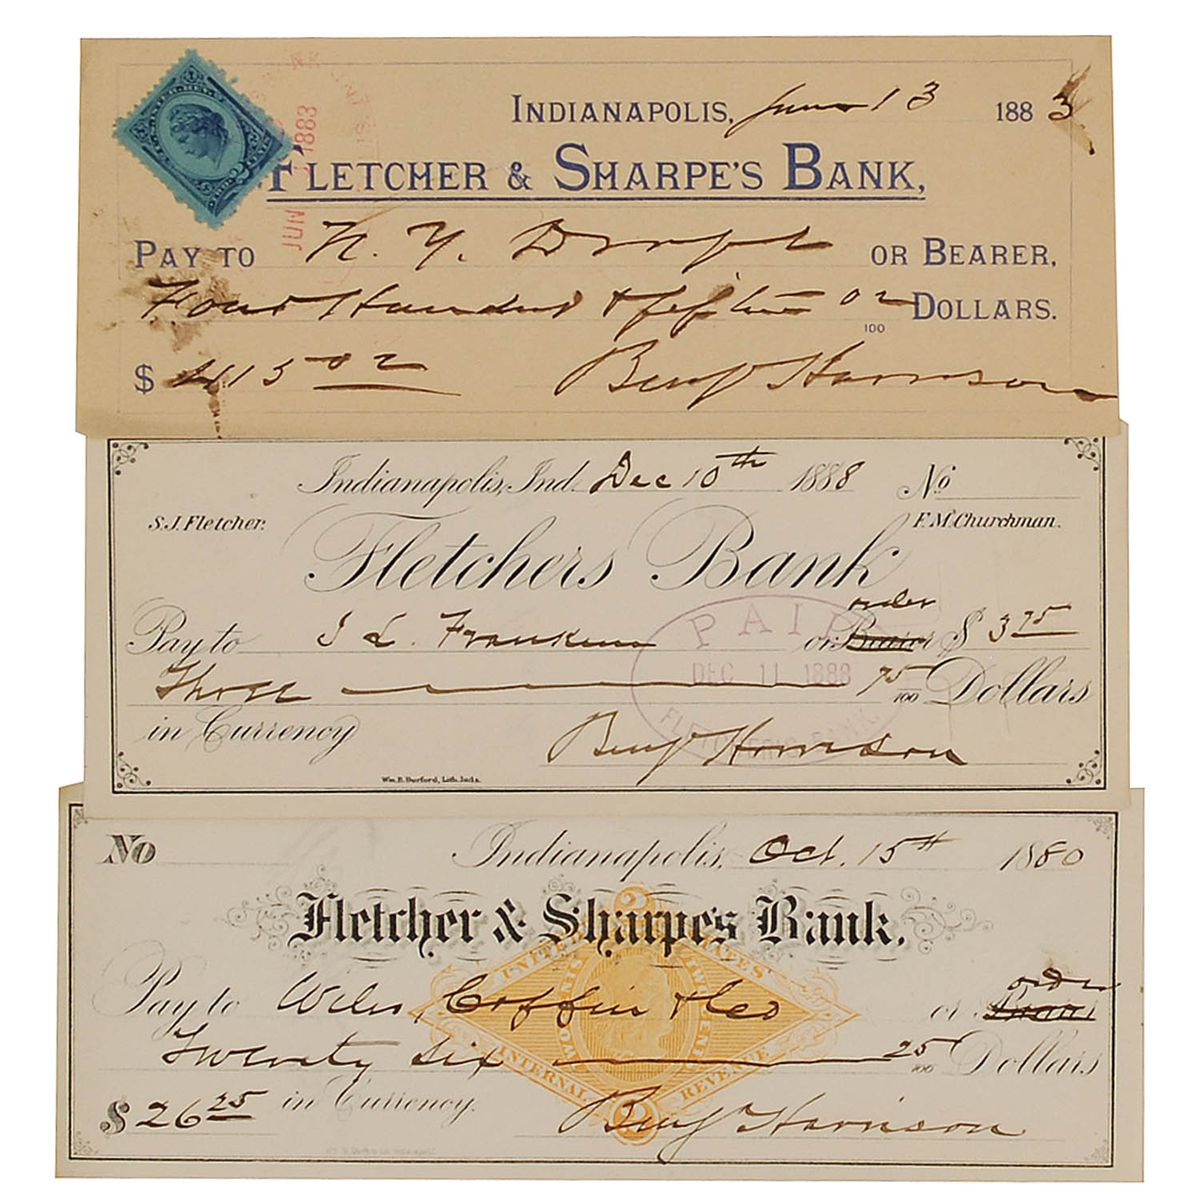 Indianapolis, June 13 1883
JUN 1883
Fletcher & Sharpe's Bank,
Pay to N. Y. Draft or Bearer,
Four Hundred & fifteen 02/100 Dollars.
$ 415 02 Benj Harrison
Indianapolis, Ind. Dec 10th 1888 No
S. J. Fletcher. F. M. Churchman.
Fletchers Bank
order
Pay to J L. or Bearer $ 3 75
PAID
DEC 11 1888
FLETCHER'S BANK.
Three 75/100 Dollars
in Currency Benj Harrison
Wm. B. Burford, Lith. Inda.
No Indianapolis, Oct. 15th 1880
Fletcher & Sharpes Bank.
UNITED STATES
INTERNAL REVENUE
2
order
Pay to Wiles, Coffin & Co or Bearer
Twenty six 25/100 Dollars
$ 26 25 in Currency. Benj Harrison